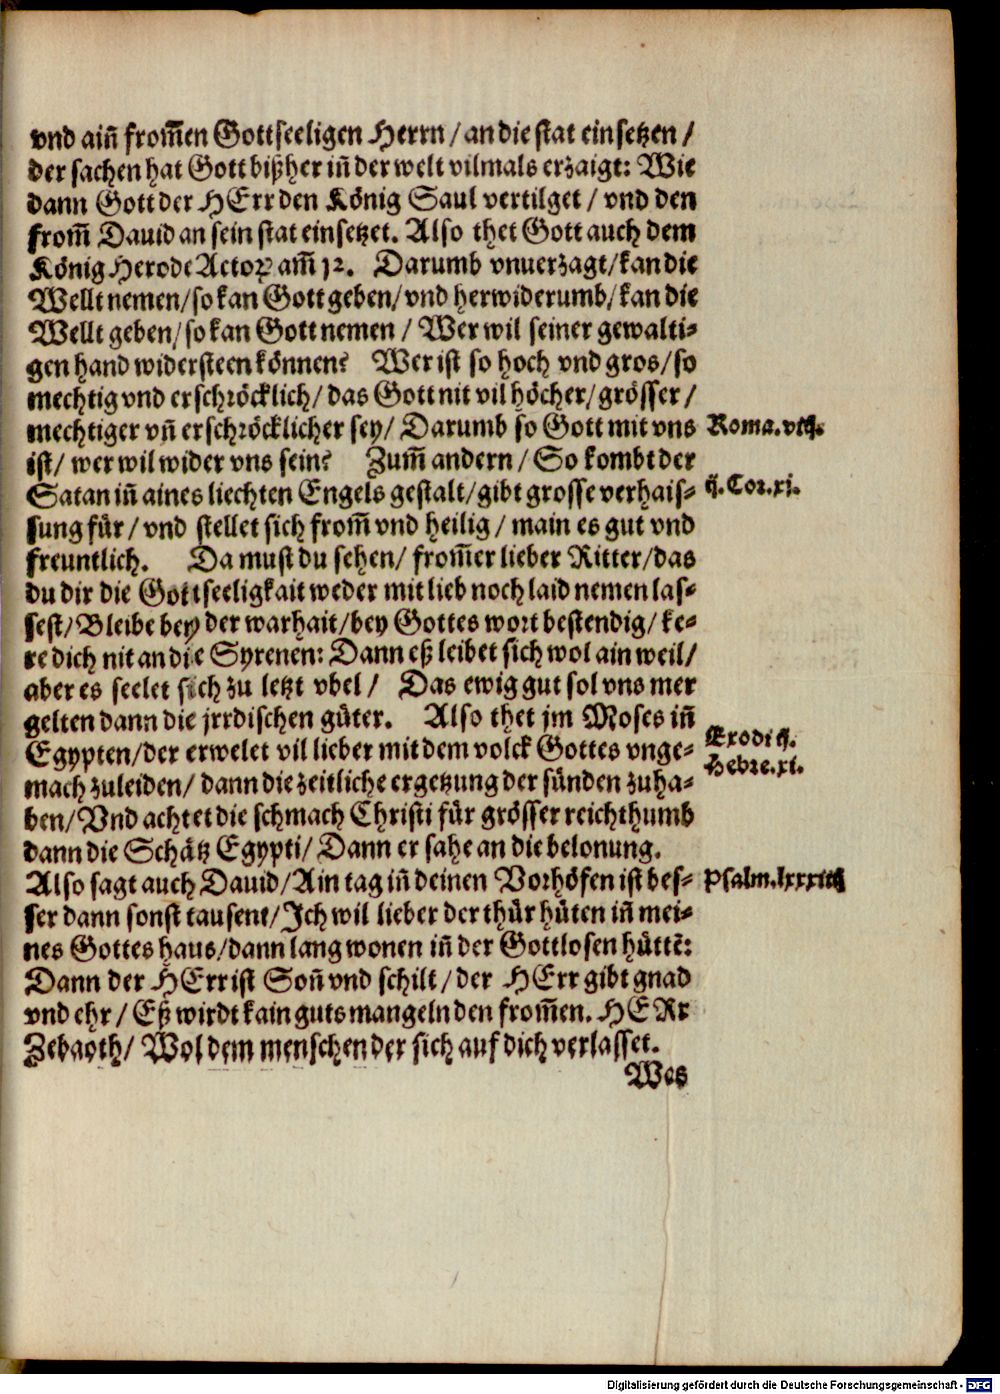 vnd ain̄ from̄en Gottseeligen Herrn / an die stat einsetzen /
der sachen hat Gott bißher in̄ der welt vilmals erzaigt: Wie
dann Gott der HErr den König Saul vertilget / vnd den
from̄ Dauid an sein stat einsetzet. Also thet Gott auch dem
König Herode Actoꝝ am̄ 12. Darumb vnuerzagt / kan die
Wellt nemen / so kan Gott geben / vnd herwiderumb / kan die
Wellt geben / so kan Gott nemen / Wer wil seiner gewalti-
gen hand widersteen können? Wer ist so hoch vnd gros / so
mechtig vnd erschröcklich / das Gott nit vil höcher / grösser /
mechtiger vn̄ erschröcklicher sey / Darumb so Gott mit vns
Roma. viij.
ist / wer wil wider vns sein? Zum̄ andern / So kombt der
Satan in̄ aines liechten Engels gestalt / gibt grosse verhais-
ij. Cor. xi.
sung für / vnd stellet sich from̄ vnd heilig / main es gut vnd
freuntlich. Da must du sehen / from̄er lieber Ritter / das
du dir die Gottseeligkait weder mit lieb noch laid nemen las-
sest / Bleibe bey der warhait / bey Gottes wort bestendig / ke-
re dich nit an die Syrenen: Dann eß leibet sich wol ain weil /
aber es seelet sich zu letzt vbel / Das ewig gut sol vns mer
gelten dann die jrrdischen güter. Also thet jm Moses in̄
Egypten / der erwelet vil lieber mit dem volck Gottes vnge-
Exodi ij.
Hebre. xi.
mach zuleiden / dann die zeitliche ergetzung der sünden zuha-
ben / Vnd achtet die schmach Christi für grösser reichthumb
dann die Schätz Egypti / Dann er sahe an die belonung.
Also sagt auch Dauid / Ain tag in̄ deinen Vorhöfen ist bes-
Psalm. lxxxiiij
ser dann sonst tausent / Ich wil lieber der thür hüten in̄ mei-
nes Gottes haus / dann lang wonen in̄ der Gottlosen hüttē:
Dann der HErr ist Son̄ vnd schilt / der HErr gibt gnad
vnd ehr / Eß wirdt kain guts mangeln den from̄en. HERr
Zebaoth / Wol dem menschen der sich auf dich verlasset.
Wes
Digitalisierung gefördert durch die Deutsche Forschungsgemeinschaft - DFG